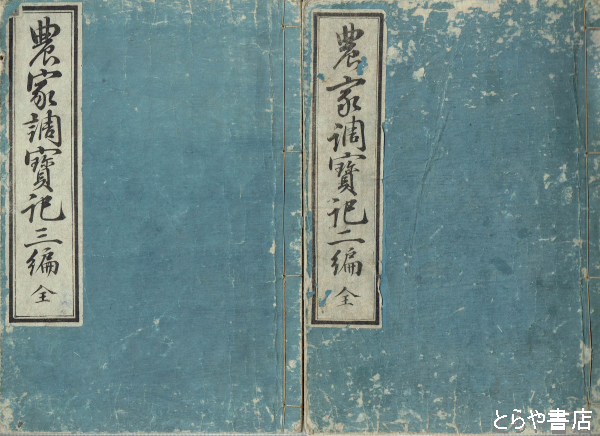 農家調寶記二編 全
農家調寶記三編 全
とらや書店